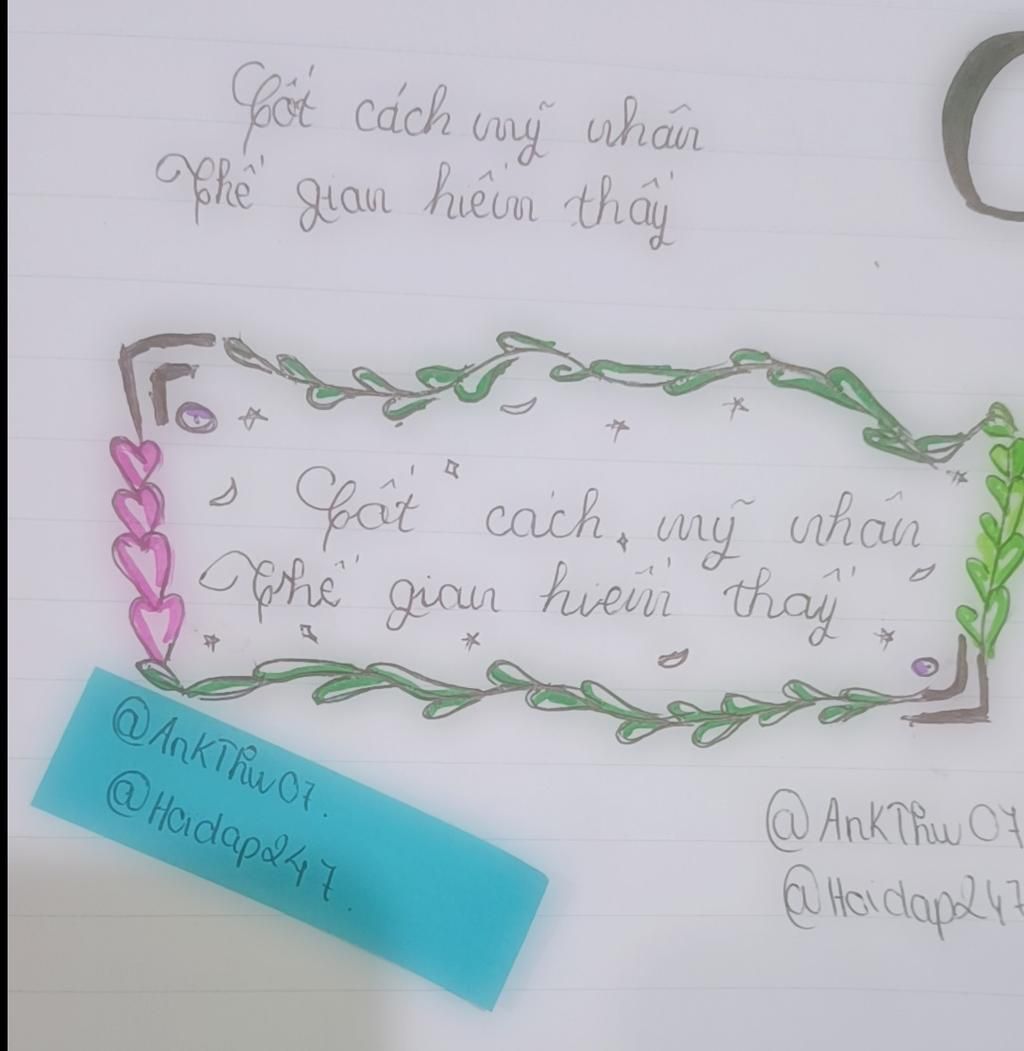 Cốt cách mỹ nhân
Thế gian hiếm thấy
Cốt cách mỹ nhân
Thế gian hiếm thấy
@AnkThw07.
@Hoidap247.
@AnkThw07
@Hoidap247